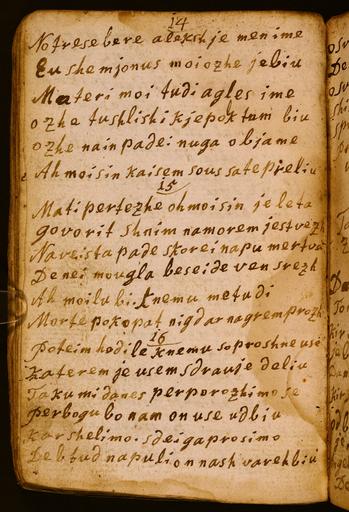 14
Notrese bere alekshje men ime
Eu shemjonus moiozhe jebiu
Materi moi tudi agles ime
ozhe tushlishi kje poktum biu
ozhe nain padei nuga objame
Ah moisin kaisem sous sate preliu
15
Mati pertezhe oh moisin je leta
govorit shnim namorem jest vezh
Naveista pade skorei napu mertva
Denei mougla beseide ven srezh
Ah moi lubi. knemu metudi
Morte pokopat nigdar nagrem prozh
16
Poteim hodile knemu soproshne use
katerem je usem sdrauje deliu
Taku mi danes per porozhimo se
per bogu bo nam on use udbiu
kar shelimo. sdei ga prosimo
De b tud napuli on nash vareh biu